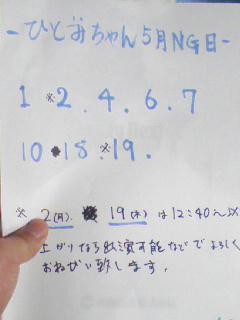 -ひとみちゃん5月NG日-
1 ※2.4.6.7
10 18.※19.
※ 2(月). 19(木)は12:40〜以
上がりなら出演可能なでよろしく
おねがい致します。